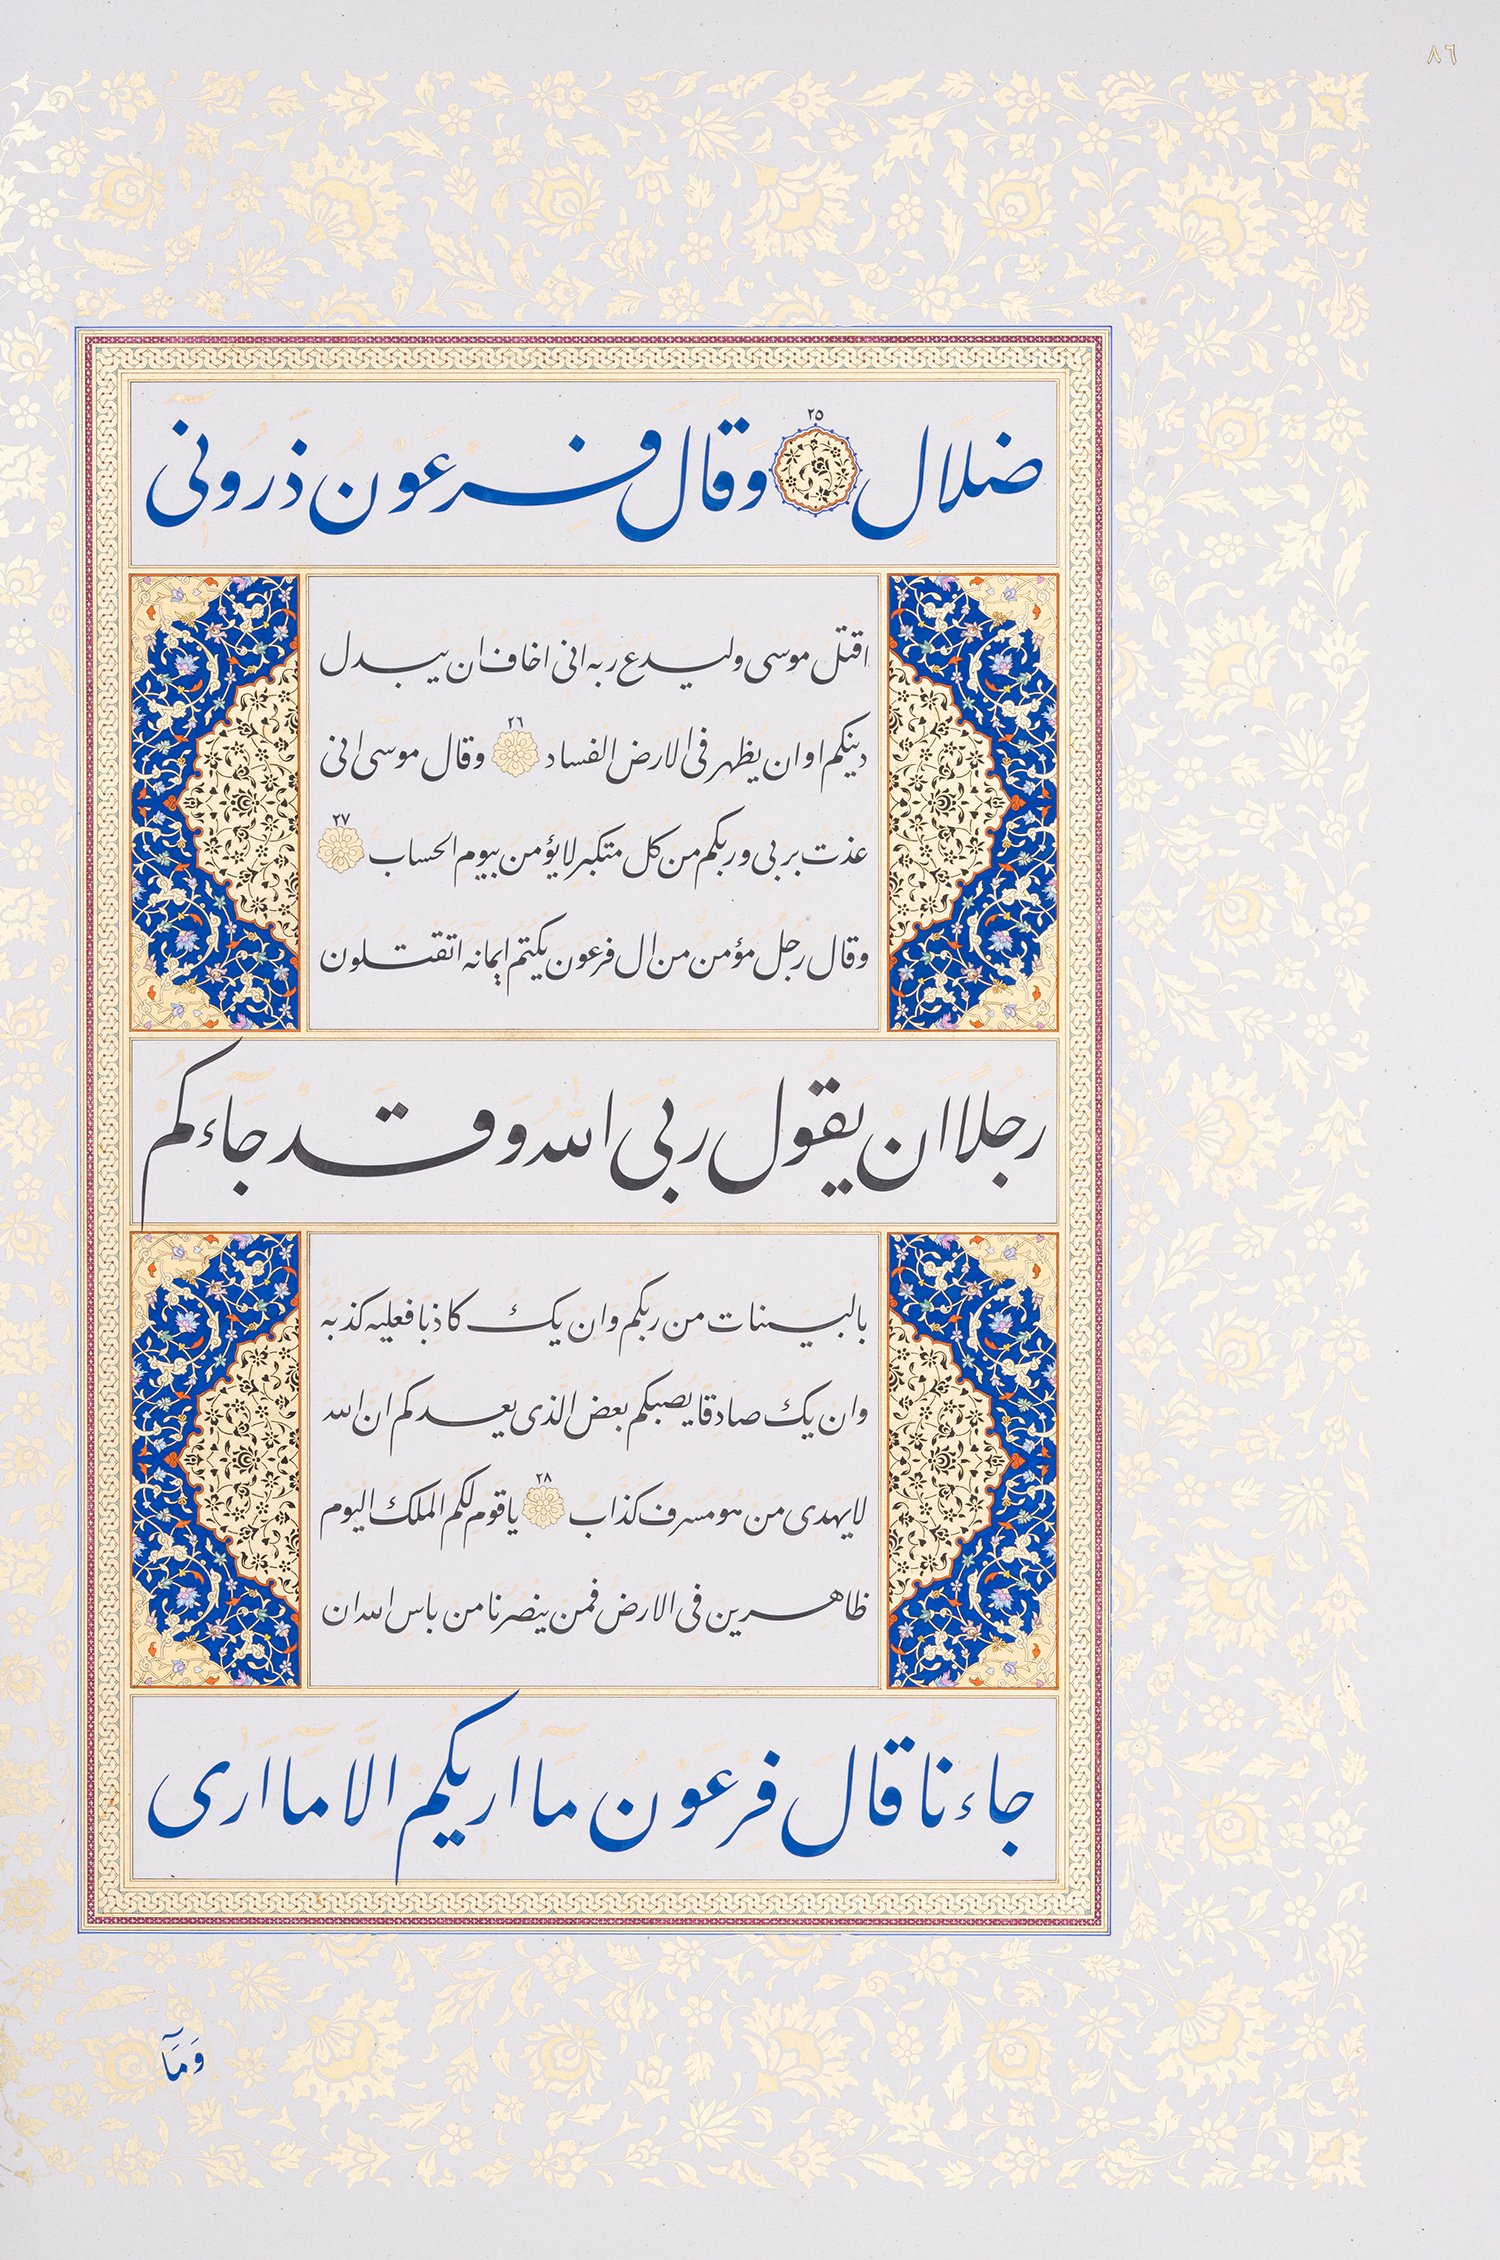 ٨٦
ضلال ٢٥ وقال فرعون ذرونى
اقتل موسى وليدع ربه انى اخاف ان يبدل
دينكم او ان يظهر فى الارض الفساد ٢٦ وقال موسى انى
عذت بربى وربكم من كل متكبر لا يؤمن بيوم الحساب ٢٧
وقال رجل مؤمن من ال فرعون يكتم ايمانه اتقتلون
رجلا ان يقول ربى الله وقد جاءكم
بالبينات من ربكم وان يك كاذبا فعليه كذبه
وان يك صادقا يصبكم بعض الذى يعدكم ان الله
لا يهدى من هو مسرف كذاب ٢٨ يا قوم لكم الملك اليوم
ظاهرين فى الارض فمن ينصرنا من باس الله ان
جاءنا قال فرعون ما اريكم الا ما ارى
وَمَآ